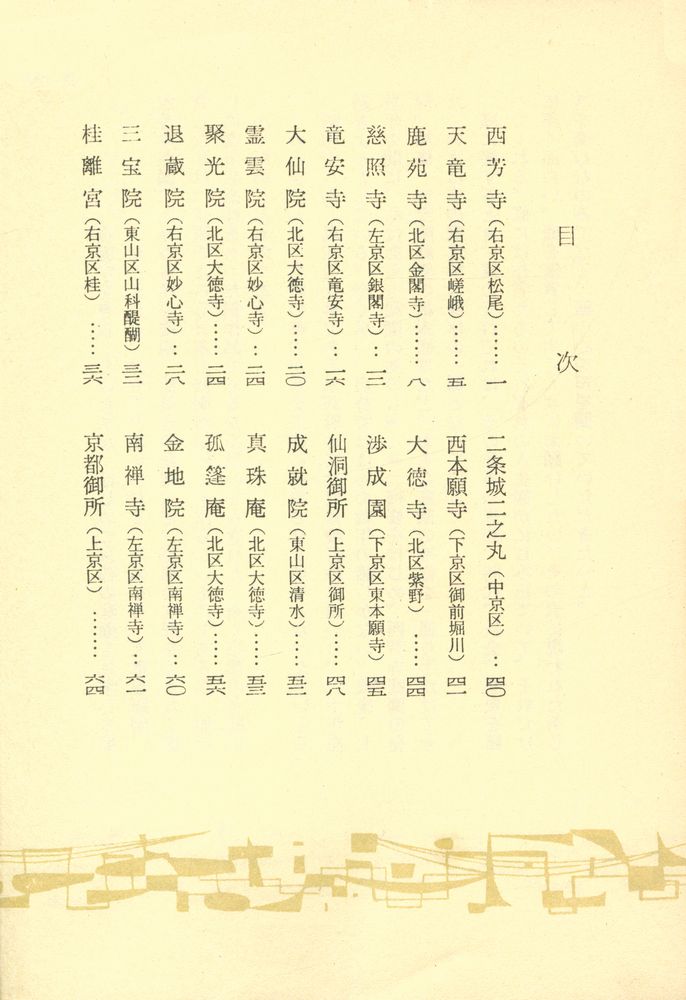 目次
西芳寺（右京区松尾）……一
天竜寺（右京区嵯峨）……五
鹿苑寺（北区金閣寺）……八
慈照寺（左京区銀閣寺）…一三
竜安寺（右京区竜安寺）…一六
大仙院（北区大徳寺）……二〇
霊雲院（右京区妙心寺）…二四
聚光院（北区大徳寺）……二四
退蔵院（右京区妙心寺）…二八
三宝院（東山区山科醍醐）三二
桂離宮（右京区桂）……三六
二条城二之丸（中京区）…四〇
西本願寺（下京区御前堀川）四一
大徳寺（北区紫野）……四四
渉成園（下京区東本願寺）四五
仙洞御所（上京区御所）……四八
成就院（東山区清水）……五二
真珠庵（北区大徳寺）……五三
孤篷庵（北区大徳寺）……五六
金地院（左京区南禅寺）…六〇
南禅寺（左京区南禅寺）…六一
京都御所（上京区）……六四